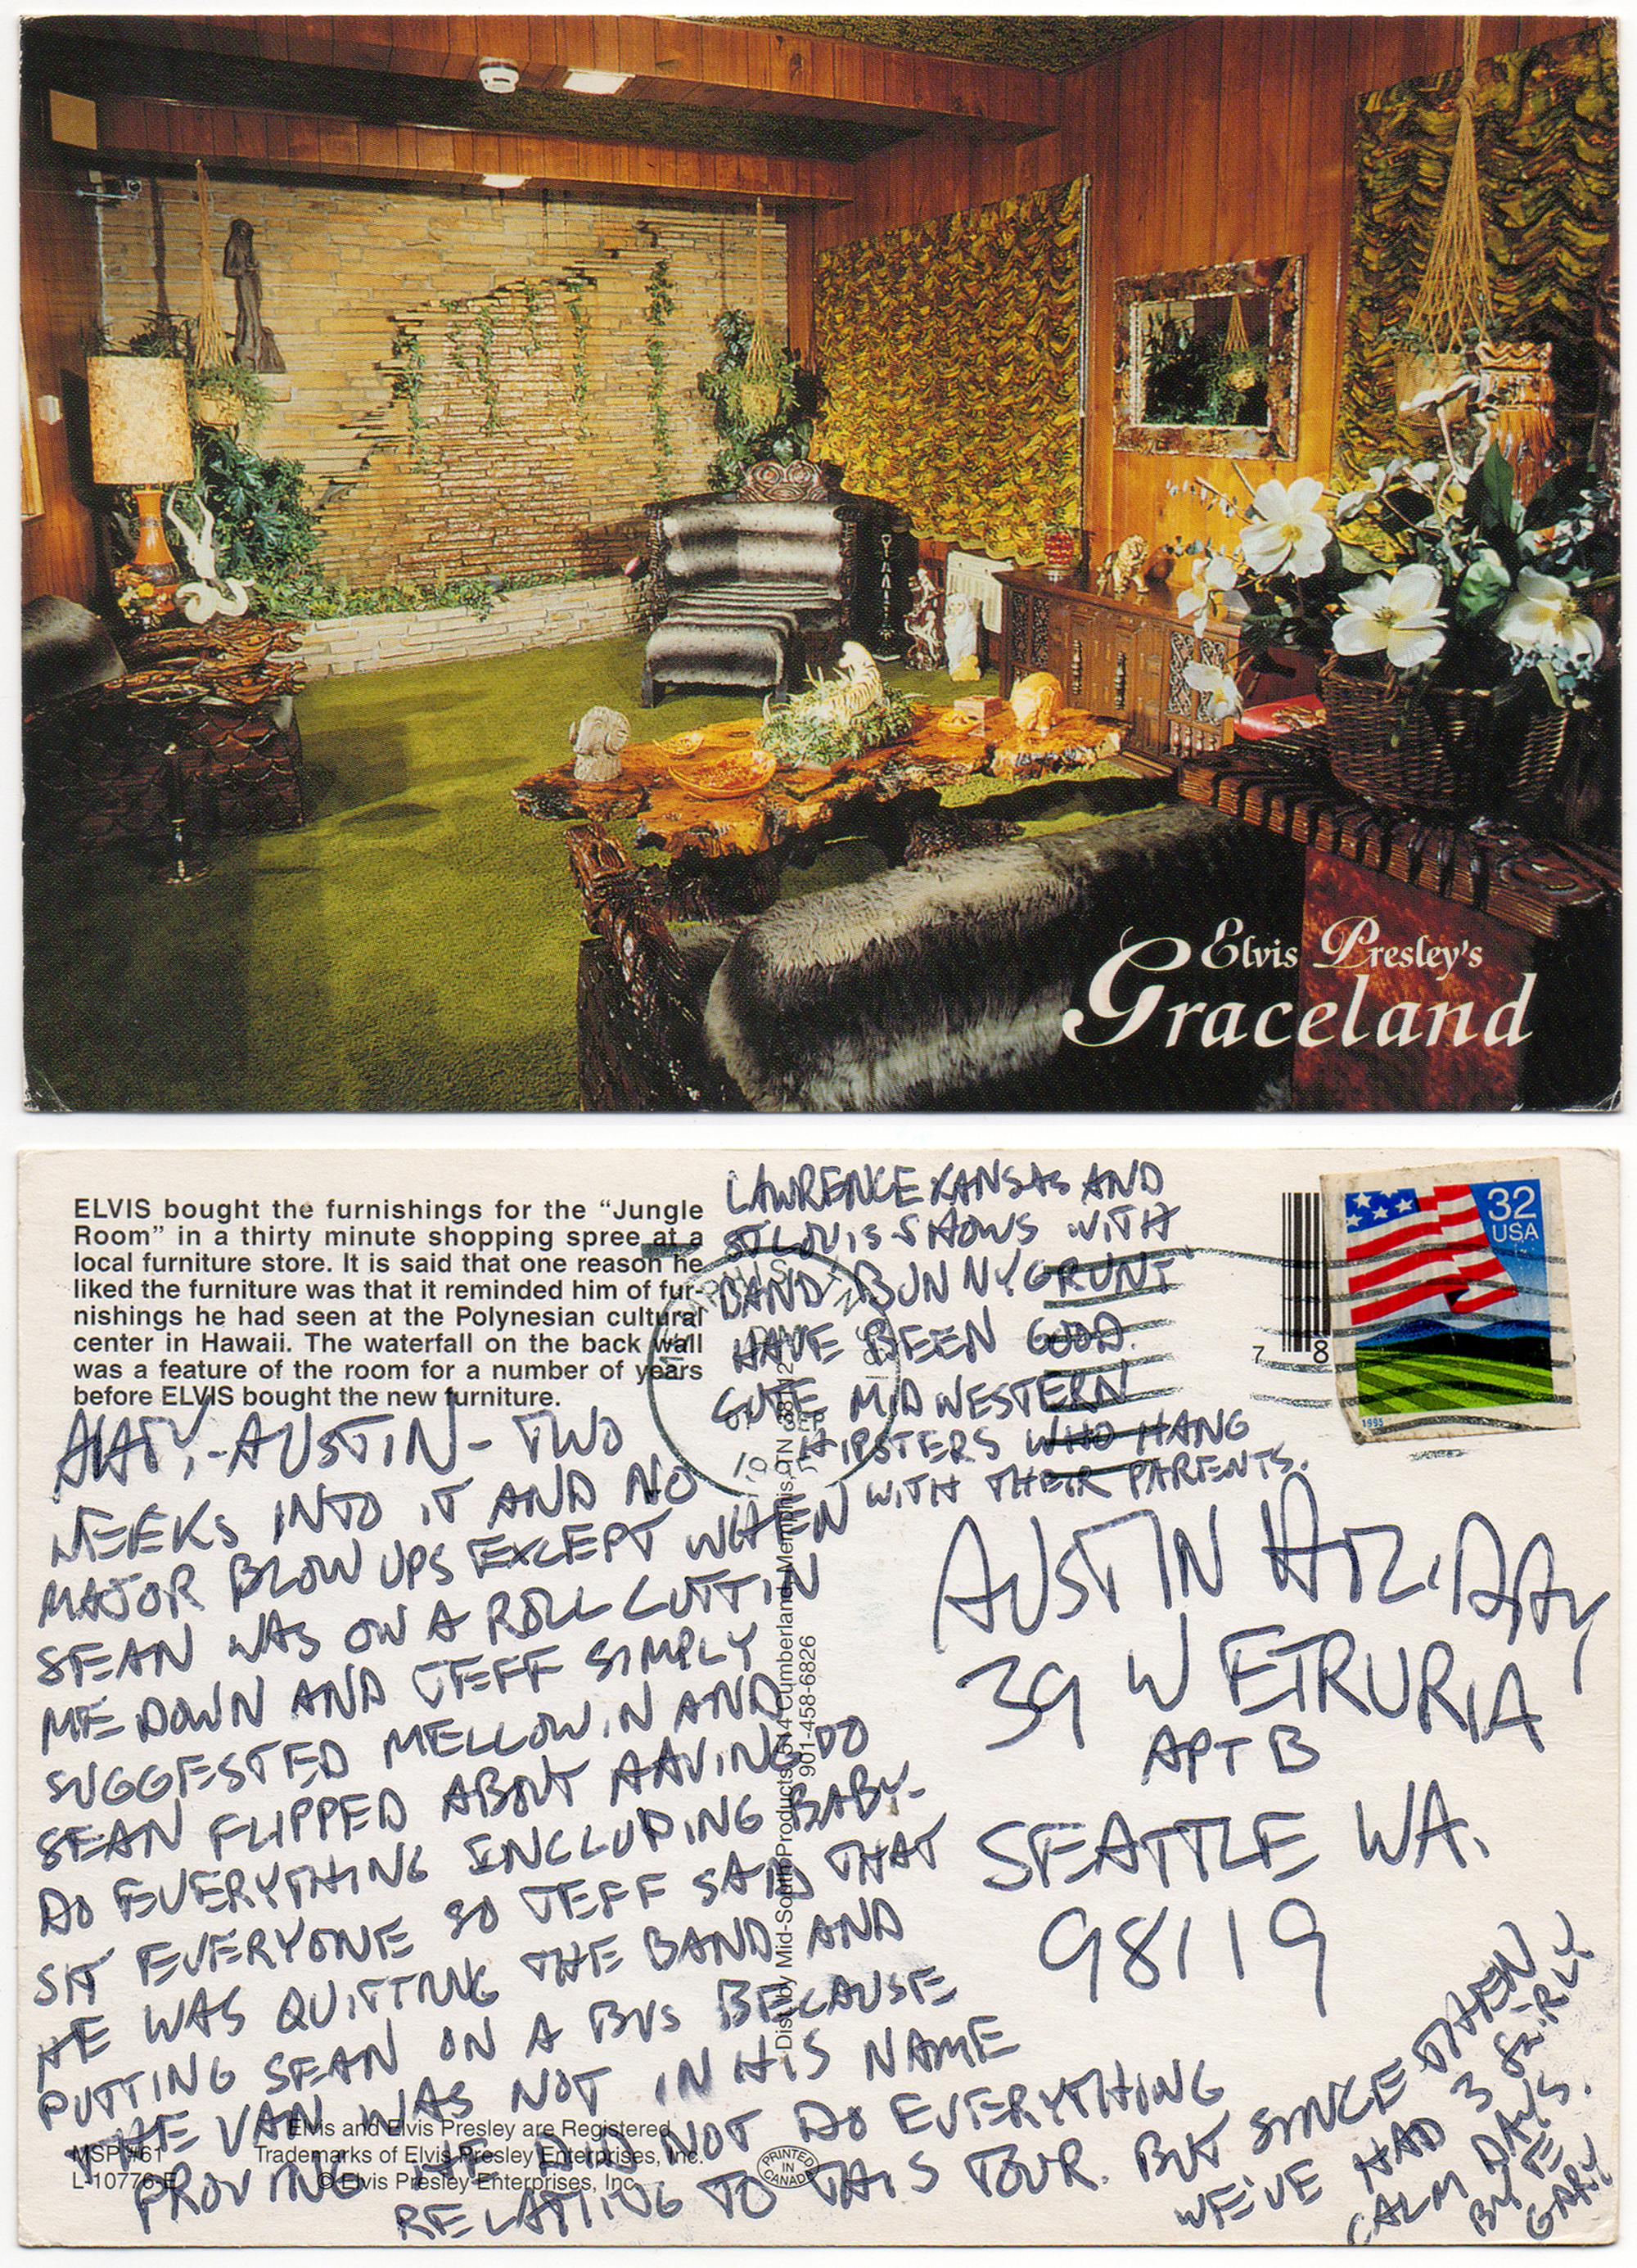 Elvis Presley's
Graceland
ELVIS bought the furnishings for the “Jungle
Room” in a thirty minute shopping spree at a
local furniture store. It is said that one reason he
liked the furniture was that it reminded him of fur-
nishings he had seen at the Polynesian cultural
center in Hawaii. The waterfall on the back wall
was a feature of the room for a number of years
before ELVIS bought the new furniture.
AUSTIN - TWO
WEEKS INTO IT AND NO
MAJOR BLOW UPS EXCEPT WHEN
SEAN WAS ON A ROLL CUTTIN
ME DOWN AND JEFF SIMPLY
SUGGESTED MELLOWIN AND
SEAN FLIPPED ABOUT HAVING DO
DO EVERYTHING INCLUDING BABY-
SIT EVERYONE SO JEFF SAID THAT
HE WAS QUITTING THE BAND AND
PUTTING SEAN ON A BUS BECAUSE
THE VAN WAS NOT IN HIS NAME
PROVING HE DID NOT DO EVERYTHING
RELATING TO THIS TOUR. BUT SINCE THEN
WE'VE HAD 3
CALM DAYS.
BYE
GARY
LAWRENCE KANSAS AND
ST LOUIS SHOWS WITH
BAND BUNNYGRUNT
HAVE BEEN GOOD.
CUTE MIDWESTERN
HIPSTERS WHO HANG
WITH THEIR PARENTS.
32
USA
1995
7 8
AUSTIN HOLIDAY
39 W ETRURIA
APT B
SEATTLE WA.
98119
Dist. by Mid-South Products, 514 Cumberland, Memphis, TN 38112
901-458-6826
MSP#61
L-10776-E
Elvis and Elvis Presley are Registered
Trademarks of Elvis Presley Enterprises, Inc.
© Elvis Presley Enterprises, Inc.
PRINTED
IN
CANADA